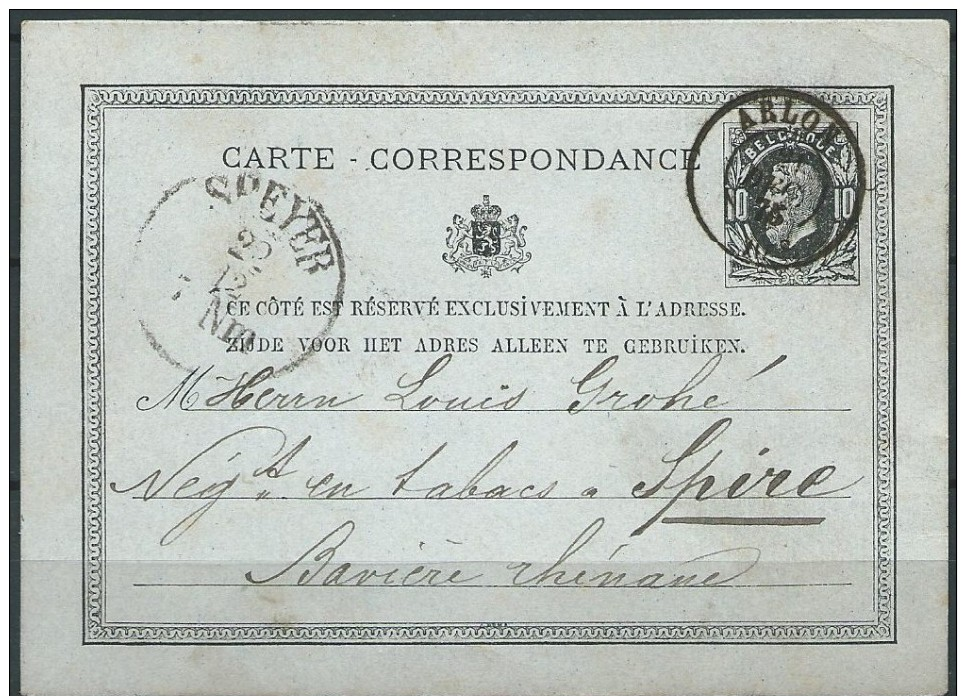 ARLON
BELGIQUE
10 10
CARTE - CORRESPONDANCE
SPEYER
20
CE CÔTÉ EST RÉSERVÉ EXCLUSIVEMENT À L'ADRESSE.
ZIJDE VOOR HET ADRES ALLEEN TE GEBRUIKEN.
M Herrn Louis Grohé
Negt en tabacs a Spire
Bavière rhénane